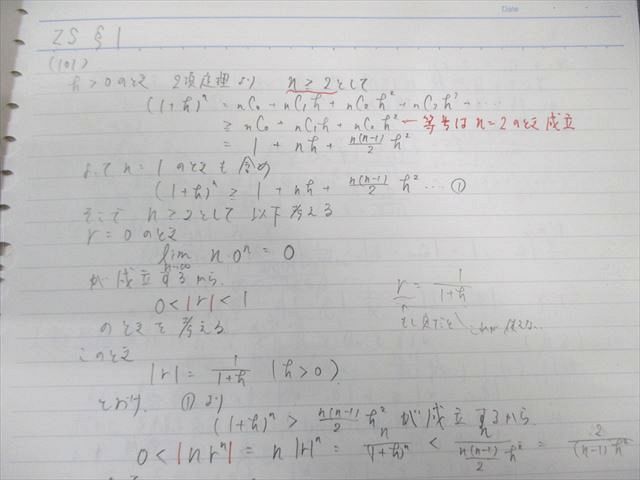 Date
ZS §1
(101)
h>0のとき 2項定理より n≧2として
(1+h)^n = nC0 + nC1h + nC2h² + nC3h³ + ‥‥
≧ nC0 + nC1h + nC2h² ← 等号はn=2のとき成立
= 1 + nh + n(n-1)/2 h²
よってn=1のときも含め
(1+h)^n ≧ 1 + nh + n(n-1)/2 h² … ①
そこで n≧2として以下考える
r=0のとき
lim n→∞ n・0^n = 0
が成立するから、
0<|r|<1
r = 1/(1+h)
のときを考える
このとき
|r| = 1/(1+h) (h>0)
とおけ、①より
(1+h)^n > n(n-1)/2 h² が成立するから、
0<|nr^n| = n|r|^n = n/(1+h)^n < n/(n(n-1)/2 h²) = 2/((n-1)h²)